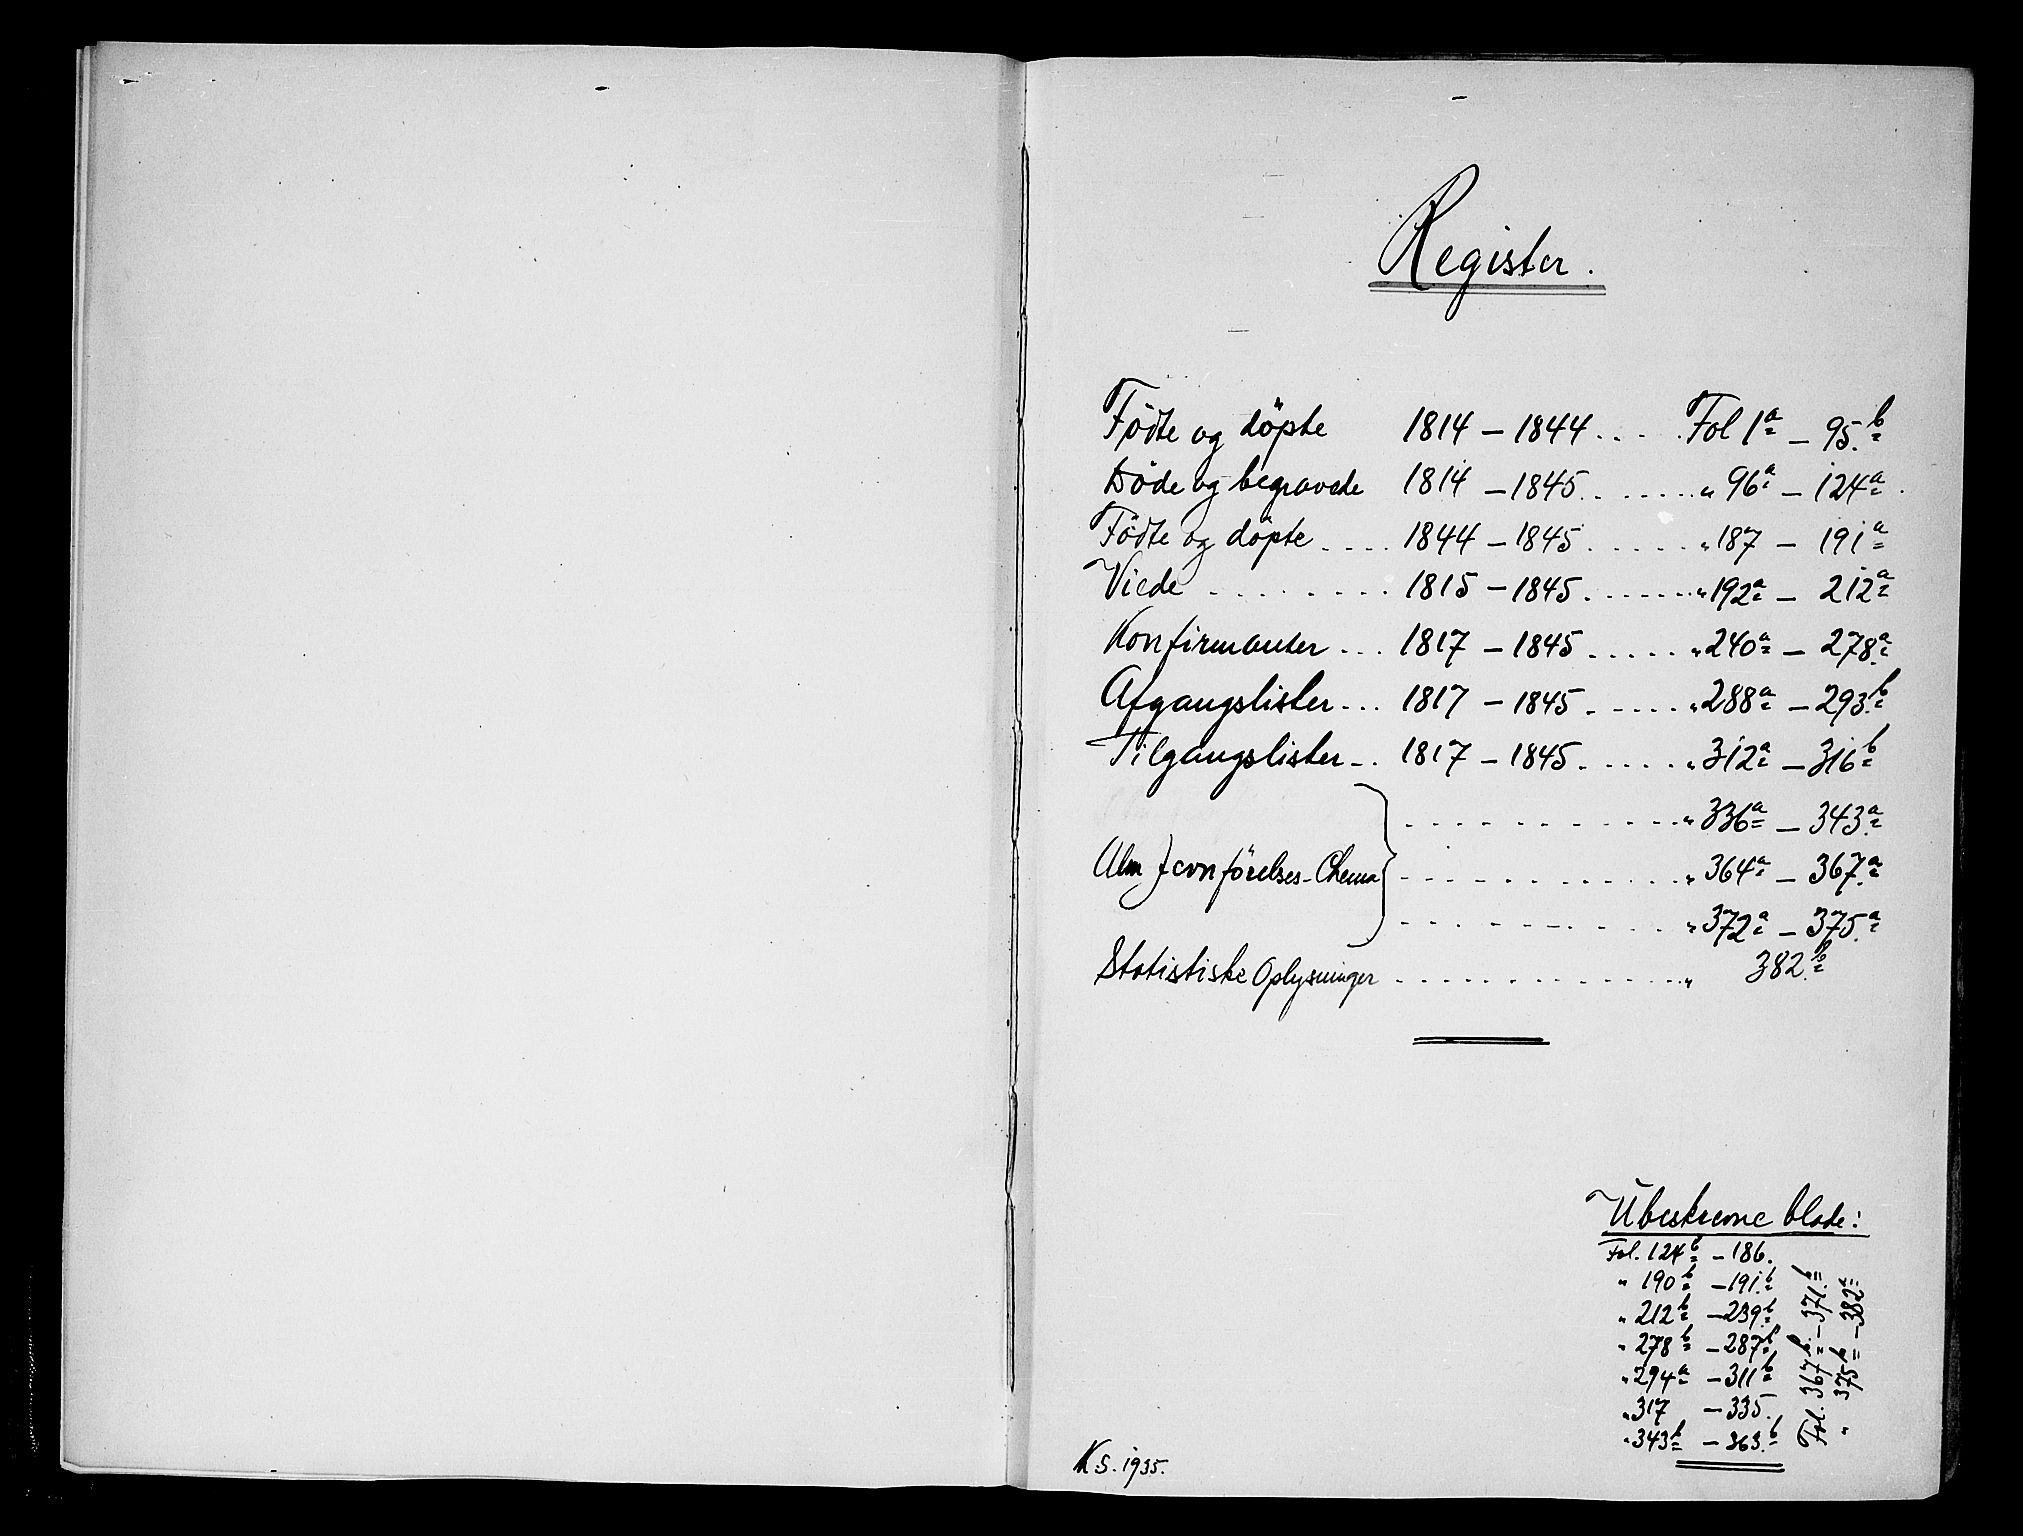 Register.
Fødte og döpte 1814 – 1844 . . . . Fol 1a – 95.b
Døde og begravede 1814 – 1845 . . . . . . . " 96a – 124a.
Födte og döpte . . . . 1844 – 1845 . . . . . . " 187 – 191a
Viede . . . . . . . . 1815 – 1845 . . . . . . . " 192a – 212a
Konfirmanter . . . 1817 – 1845 . . . . . " 240a – 278.a
Afgangslister . . . 1817 – 1845 . . . . . " 288a – 293.b
Tilgangslister . . 1817 – 1845 . . . . . " 312a – 316b
. . . . . . . . . . . . " 336a – 343.a
Alm Jevnförelses-Chema . . . . . . . . . . . . " 364a – 367.a
. . . . . . . . . . . . " 372a – 375.a
Statistiske Oplysninger . . . . . . . . . . . . . " 382.b
Ubeskrevne blade:
Fol. 124b – 186.
" 190b – 191.b
" 212b – 239.b
" 278b – 287.b
" 294a – 311b
" 317 – 335.
" 343b – 363.b
Fol. 367b – 371.b
" 375b – 382a
K.S. 1935.